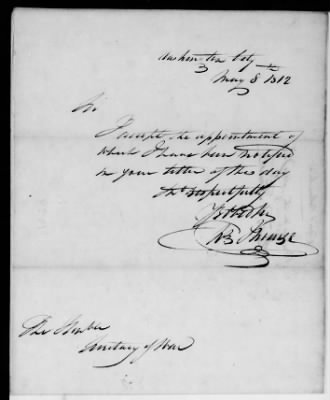 Washington City
May 8th 1812
Sir
I accept the appointment of
which I have been notified
in your letter of this day
respectfully
The Honble
Secretary of War